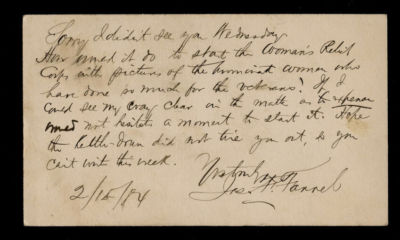 Sorry I didn't see you Wednesday
How would it do to start the Woman's Relief
Corps with pictures of the prominent women who
have done so much for the veterans? If I
could see my way clear in the math as to expense
would not hesitate a moment to start it. Hope
the little down did not tire you out, so you
can't write this week.
Jas. H. Farrel
2/15/94